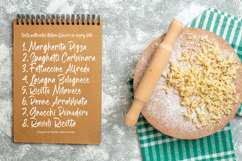 Taste authentic Italian flavors in every bite
1. Margherita Pizza
2. Spaghetti Carbonara
3. Fettuccine Alfredo
4. Lasagna Bolognese
5. Risotto Milanese
6. Penne Arrabbiata
7. Gnocchi Pomodoro
8. Ravioli Ricotta